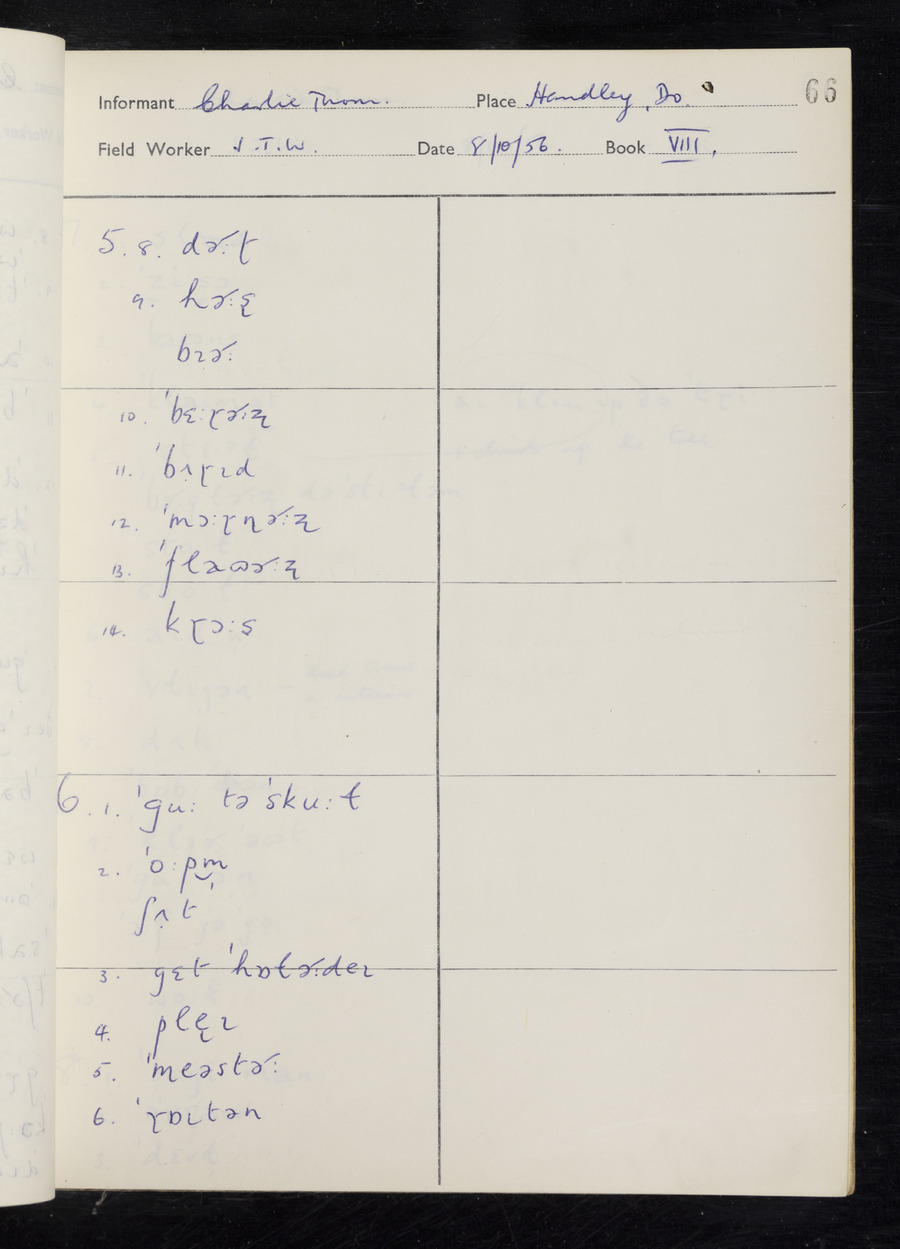 Informant Charlie Thom. Place Handley, Do. 66
Field Worker J.T.W. Date 8/10/56. Book VIII.
5. 8. dɚːʈ
9. hɚːʂ
bɪɚː
10. ˈbɛːɽɚːʐ
11. ˈbʌɽɪd
12. ˈmɔːɽɳɚːʐ
13. ˈflaʊɚːʐ
14. kɽɔːs
6. 1. ˈguː tə ˈskuːɫ
2. ˈoːpm̩
ʃʌt
3. gɛt ˈhɒtɚːdeɪ
4. pleɪ
5. ˈmeəstɚː
6. ˈɽɒɪtən